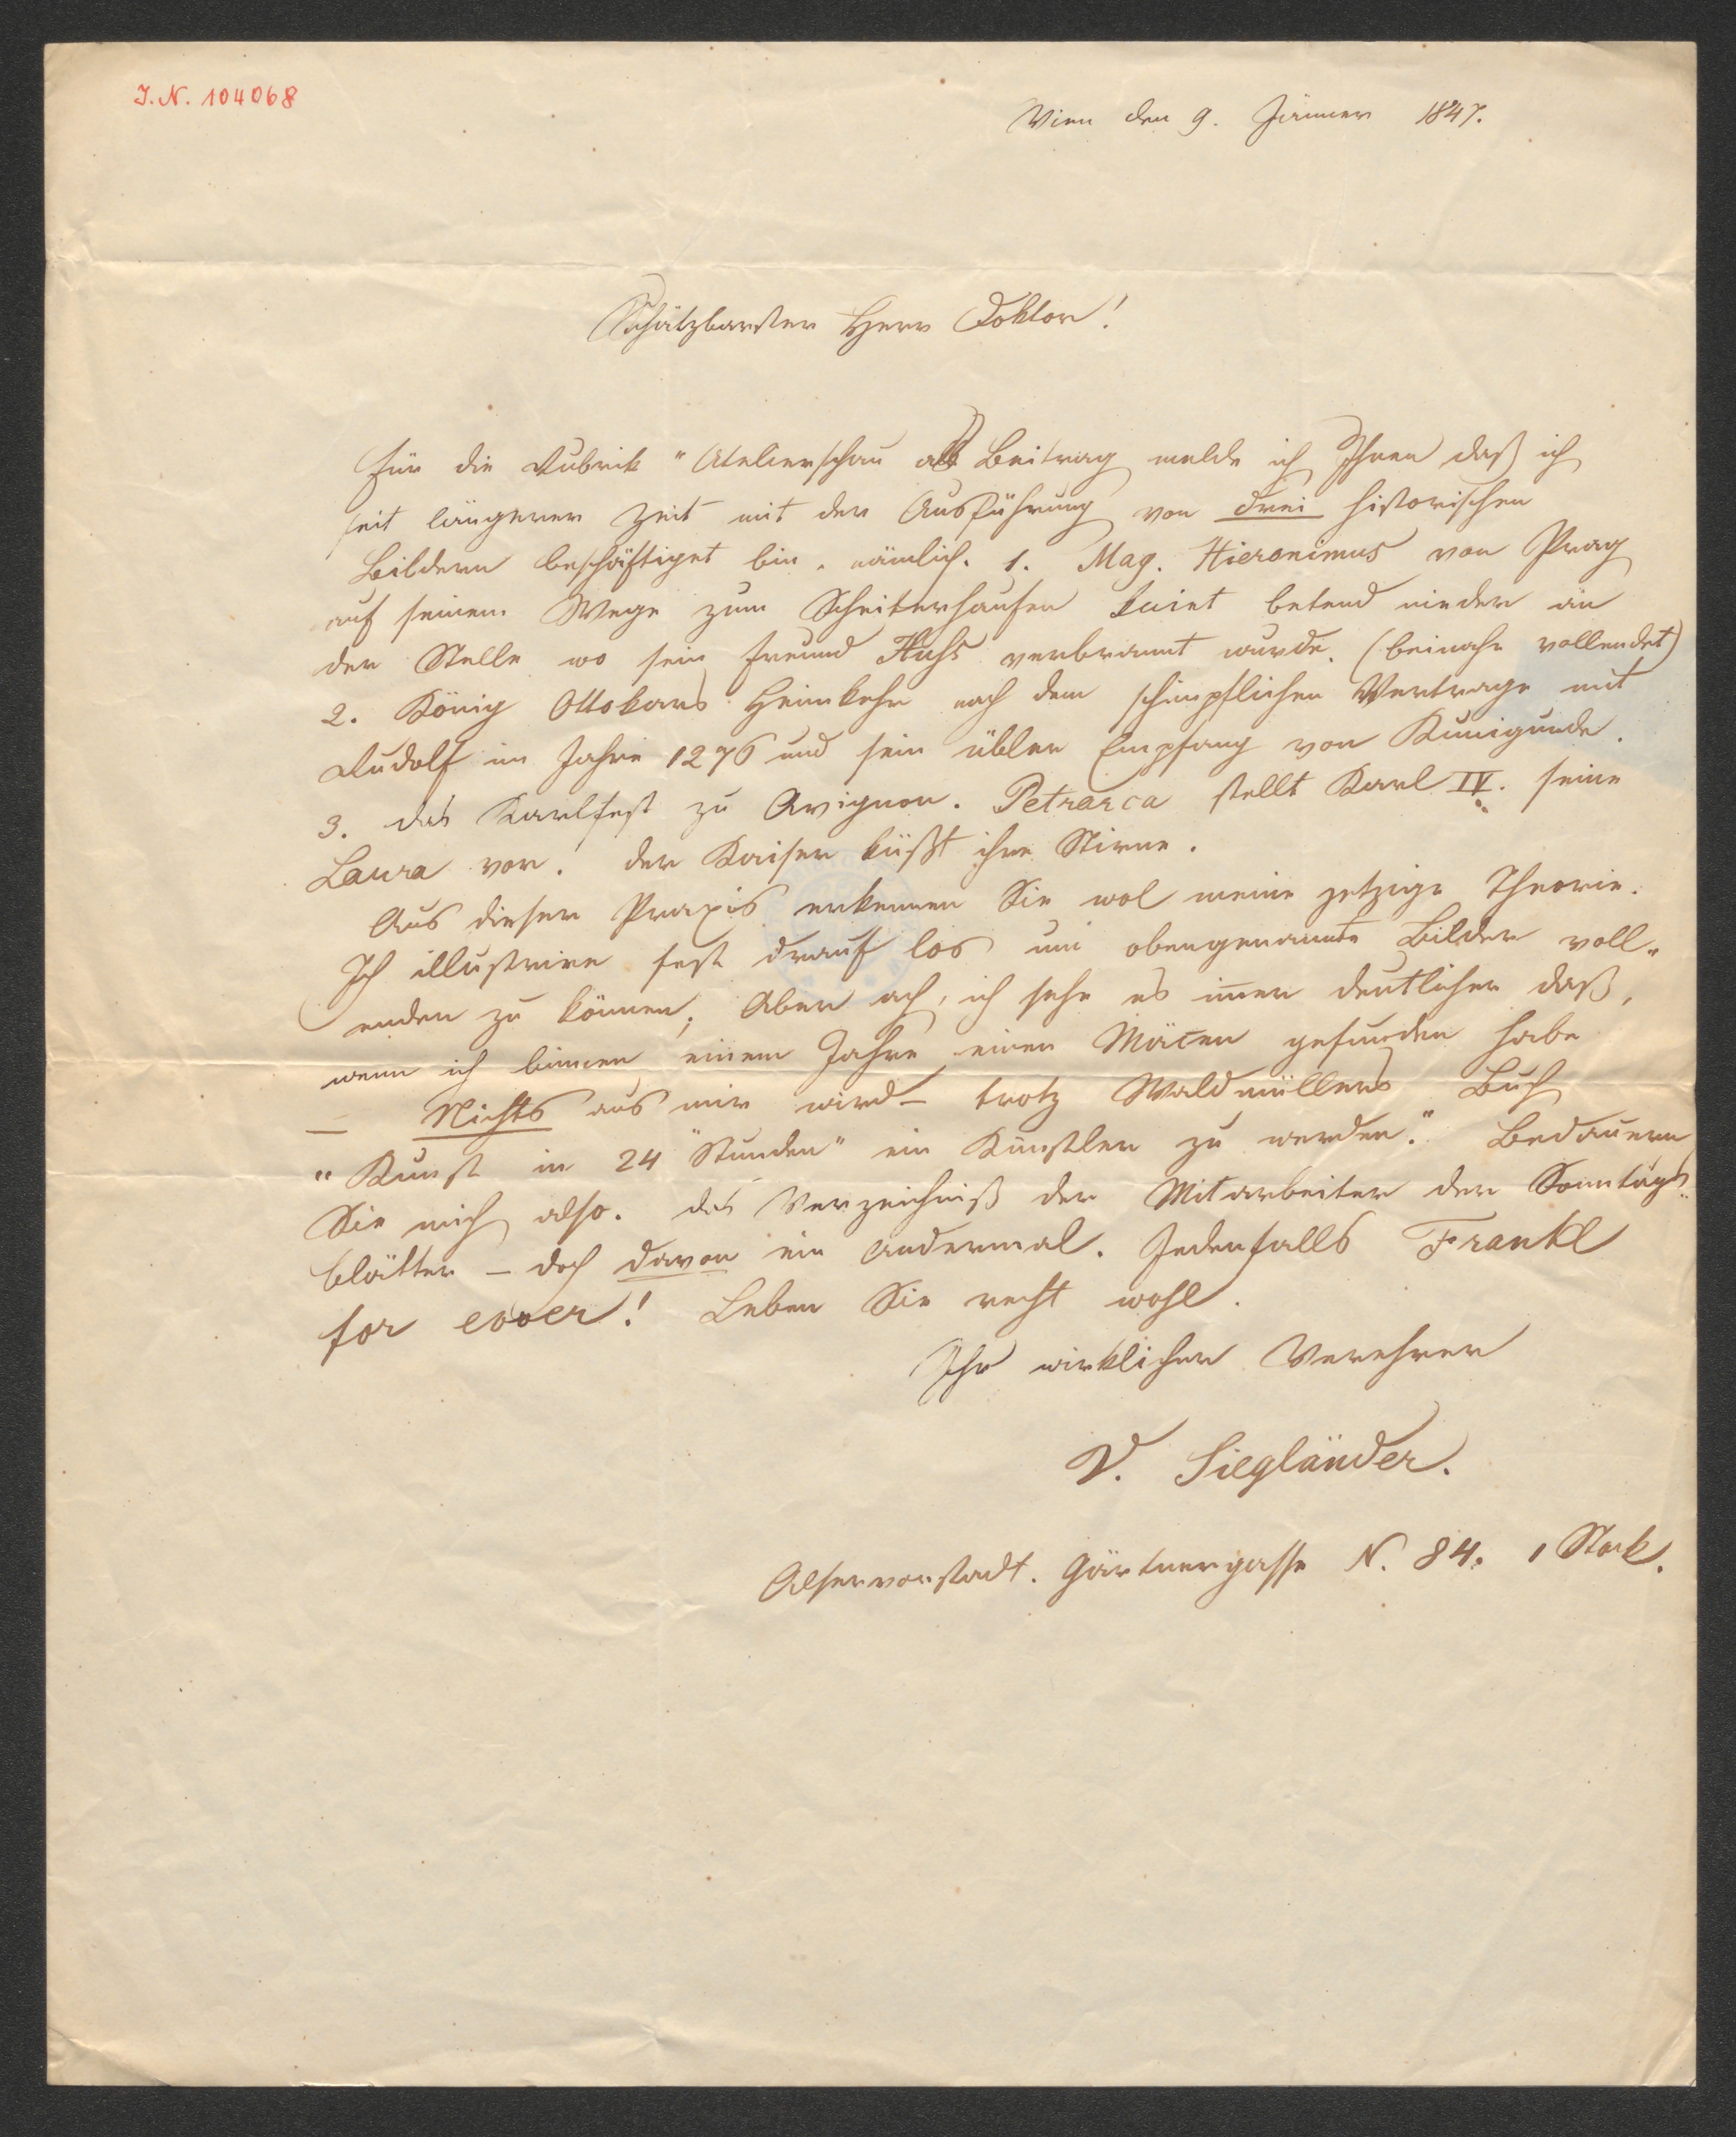 J. N. 104068
Wien den 9. Jänner 1847.
Schätzbarster Herr Doktor!
Für die Rubrik "Atelierschau als Beitrag melde ich Ihnen daß ich
seit längerer Zeit mit der Ausführung von drei historischen
Bildern beschäftiget bin, nämlich. 1. Mag. Hieronimus von Prag
auf seinem Wege zum Scheiterhaufen kniet betend nieder an
der Stelle wo sein Freund Huhs verbrannt wurde. (beinahe vollendet)
2. König Ottokars Heimkehr nach dem schimpflichen Vertrage mit
Rudolf im Jahre 1276 und sein übler Empfang von Kunigunde.
3. das Karlfest zu Avignon. Petrarca stellt Karl IV. seine
Laura vor. der Kaiser küßt ihre Stirne.
Aus dieser Praxis erkennen Sie wol meine jetzige Theorie.
Ich illustrire fest drauf los um obengenannte Bilder voll„
enden zu können; Aber ach, ich sehe es imer deutlicher daß,
wenn ich binnen einem Jahre einen Mäcen gefunden habe
– Nichts aus mir wird – trotz Waldmüllers Buch
"Kunst in 24 Stunden" ein Künstler zu werden." Bedauern
Sie mich also. das Verzeichniß der Mitarbeiter der Sonntags„
blätter – doch davon ein andermal. Jedenfalls Frankl
for ewer! Leben Sie recht wohl.
Ihr wirklicher Verehrer
V. Siegländer.
Alservorstadt. Gärtnergasse N. 84. 1 Stock.